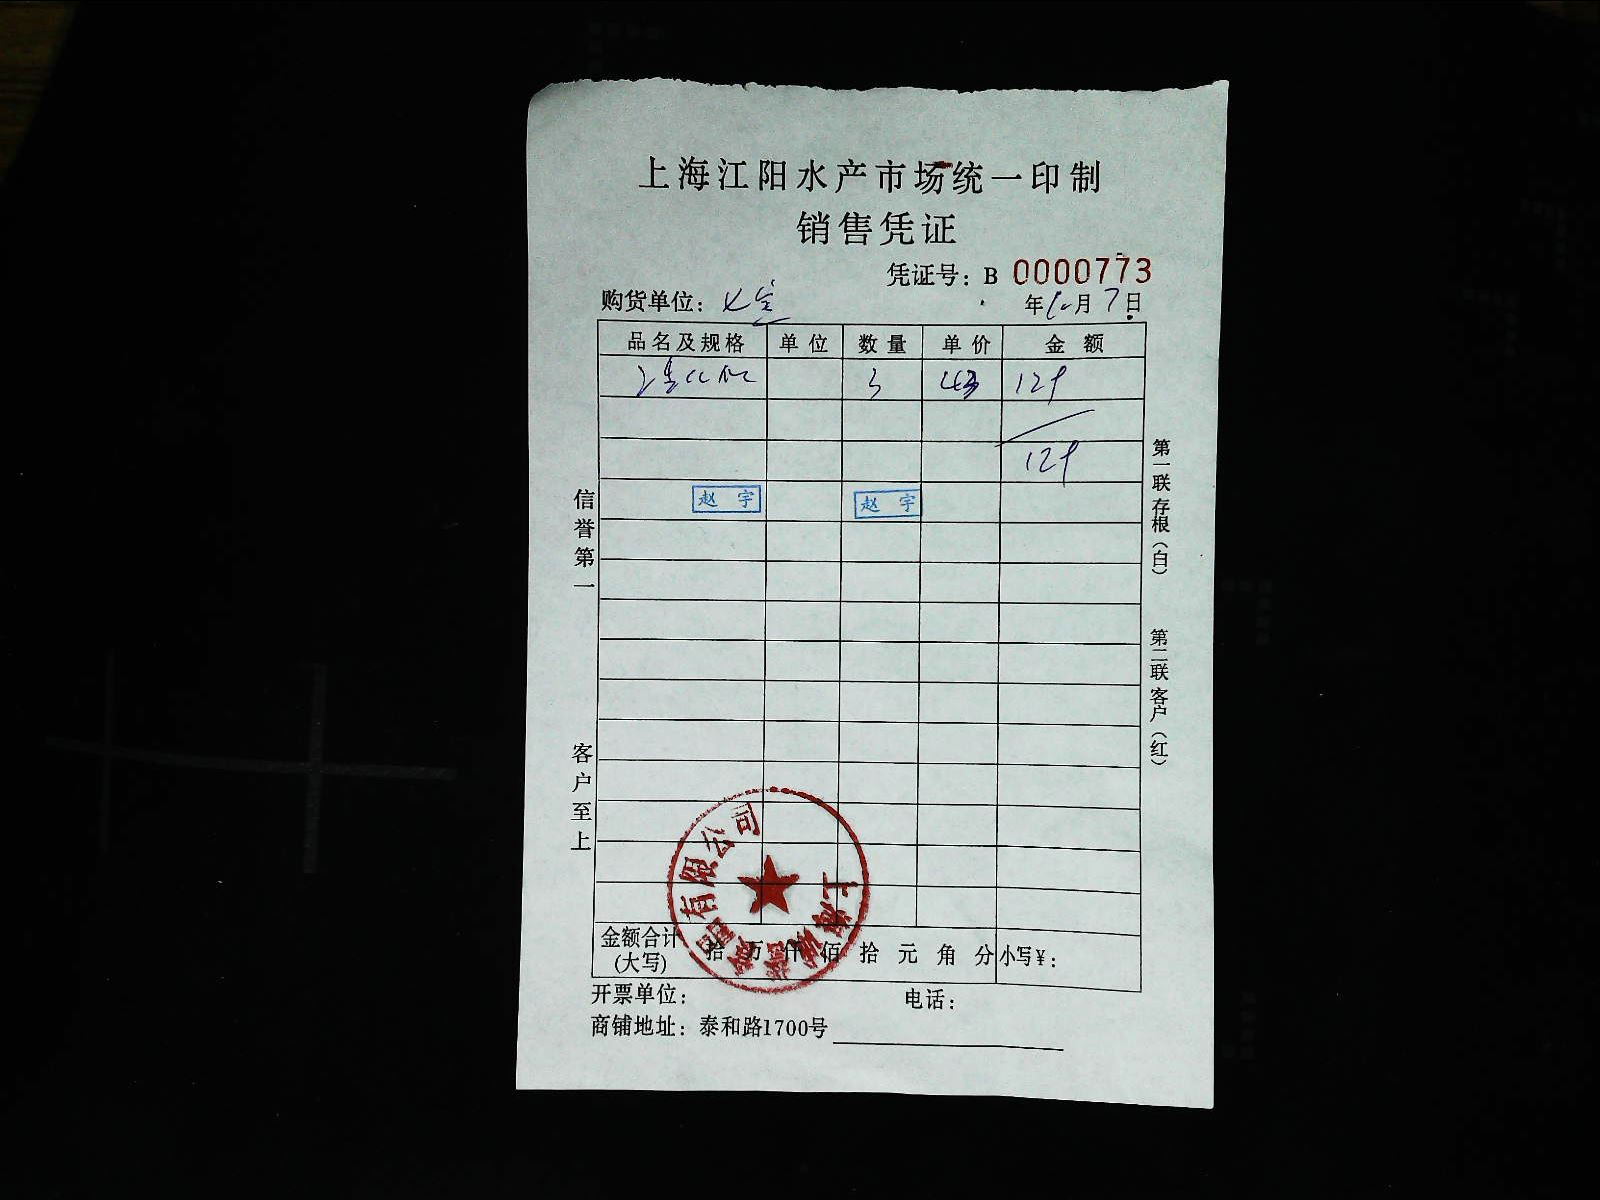 上海江阳水产市场统一印制
销售凭证
凭证号：B 0000773
购货单位： 年 月 7 日
品名及规格 单位 数量 单价 金额
3 43 129
129
赵 宇 赵 宇
信誉第一
客户至上
第一联存根（白）
第二联客户（红）
有限公司
上海
金额合计（大写） 拾 万 仟 佰 拾 元 角 分 小写¥：
开票单位： 电话：
商铺地址：泰和路1700号